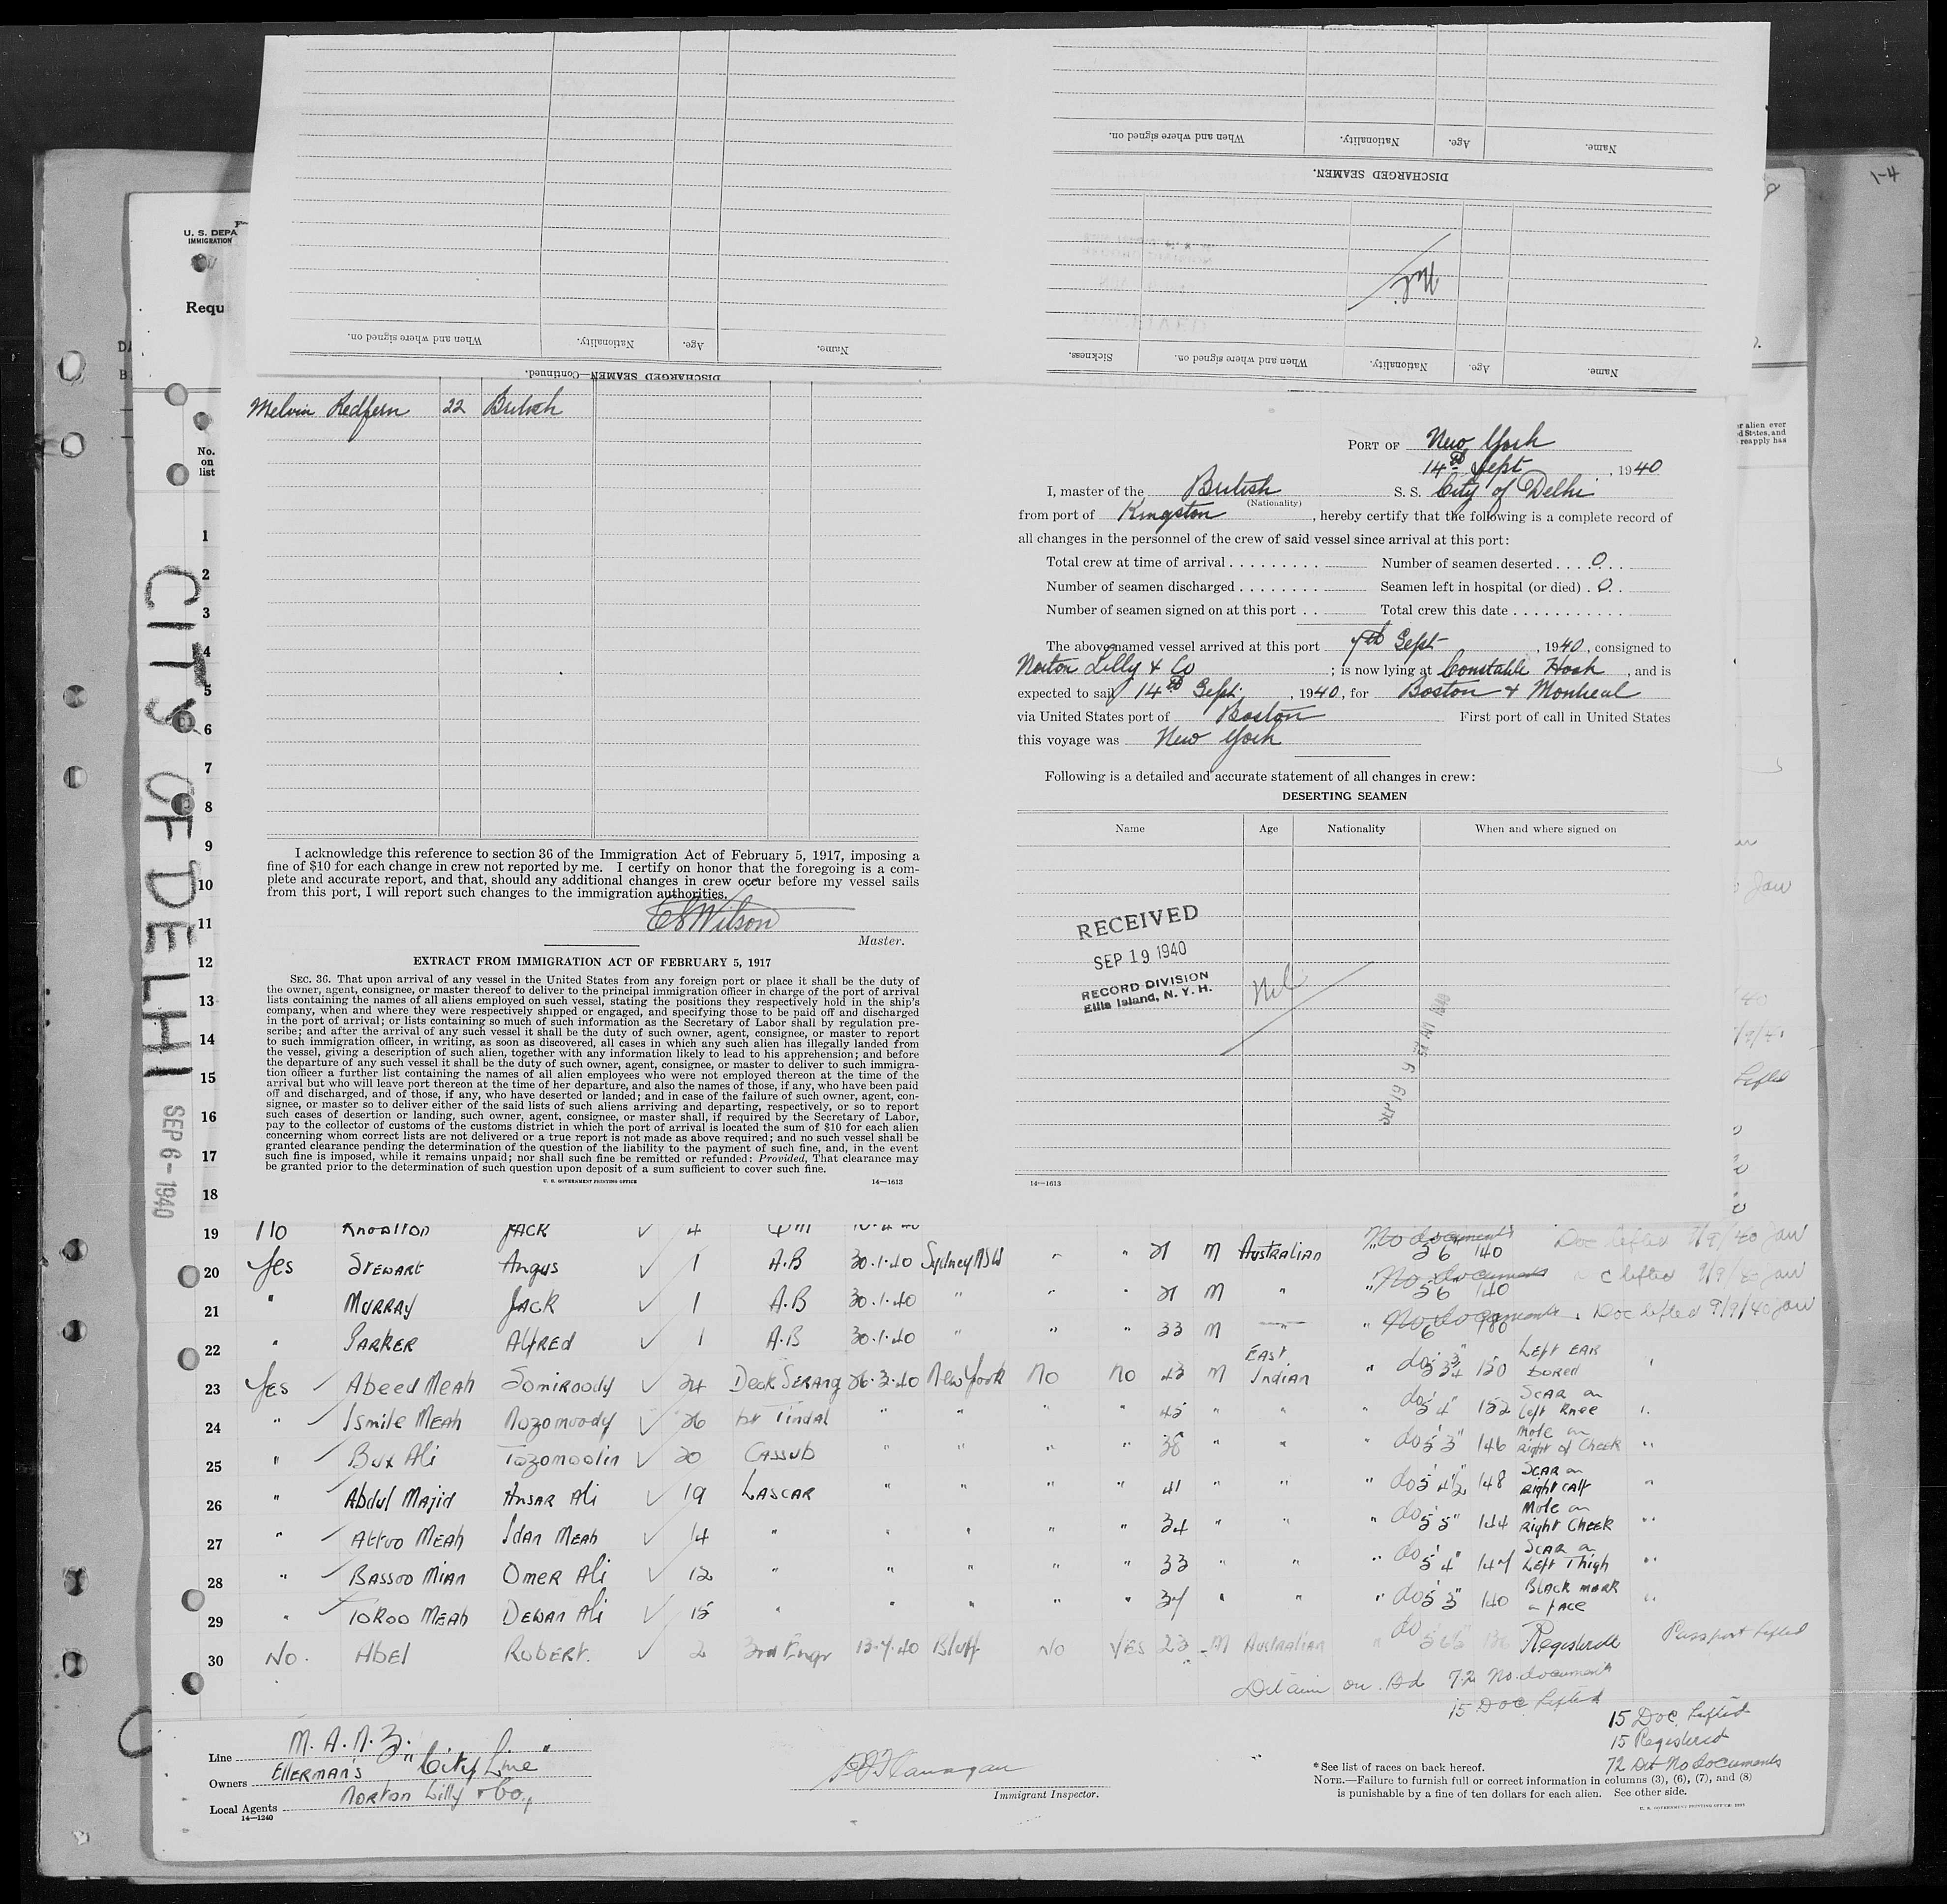 1-4
U. S. DEPA
IMMIGRATION
Requ
When and where signed on.
Nationality.
Age.
Name.
DISCHARGED SEAMEN.
Nil.
Sickness.
When and where signed on.
Nationality.
Age.
Name.
When and where signed on.
Nationality.
Age.
Name.
DISCHARGED SEAMEN—Continued.
Melvin Redfern 22 British
r alien ever
d States, and
reapply has
No.
on
list
1
2
3
4
5
6
7
8
9
10
11
12
13
14
15
16
17
18
CITY OF DELHI
SEP 6 - 1940
I acknowledge this reference to section 36 of the Immigration Act of February 5, 1917, imposing a
fine of $10 for each change in crew not reported by me. I certify on honor that the foregoing is a com-
plete and accurate report, and that, should any additional changes in crew occur before my vessel sails
from this port, I will report such changes to the immigration authorities.
Wilson
Master.
EXTRACT FROM IMMIGRATION ACT OF FEBRUARY 5, 1917
SEC. 36. That upon arrival of any vessel in the United States from any foreign port or place it shall be the duty of
the owner, agent, consignee, or master thereof to deliver to the principal immigration officer in charge of the port of arrival
lists containing the names of all aliens employed on such vessel, stating the positions they respectively hold in the ship's
company, when and where they were respectively shipped or engaged, and specifying those to be paid off and discharged
in the port of arrival; or lists containing so much of such information as the Secretary of Labor shall by regulation pre-
scribe; and after the arrival of any such vessel it shall be the duty of such owner, agent, consignee, or master to report
to such immigration officer, in writing, as soon as discovered, all cases in which any such alien has illegally landed from
the vessel, giving a description of such alien, together with any information likely to lead to his apprehension; and before
the departure of any such vessel it shall be the duty of such owner, agent, consignee, or master to deliver to such immigra-
tion officer a further list containing the names of all alien employees who were not employed thereon at the time of the
arrival but who will leave port thereon at the time of her departure, and also the names of those, if any, who have been paid
off and discharged, and of those, if any, who have deserted or landed; and in case of the failure of such owner, agent, con-
signee, or master so to deliver either of the said lists of such aliens arriving and departing, respectively, or so to report
such cases of desertion or landing, such owner, agent, consignee, or master shall, if required by the Secretary of Labor,
pay to the collector of customs of the customs district in which the port of arrival is located the sum of $10 for each alien
concerning whom correct lists are not delivered or a true report is not made as above required; and no such vessel shall be
granted clearance pending the determination of the question of the liability to the payment of such fine, and, in the event
such fine is imposed, while it remains unpaid; nor shall such fine be remitted or refunded: Provided, That clearance may
be granted prior to the determination of such question upon deposit of a sum sufficient to cover such fine.
U. S. GOVERNMENT PRINTING OFFICE 14—1613
PORT OF New York
14th Sept, 1940
I, master of the British S. S. City of Delhi
(Nationality)
from port of Kingston, hereby certify that the following is a complete record of
all changes in the personnel of the crew of said vessel since arrival at this port:
Total crew at time of arrival . . . . . . . . . Number of seamen deserted . . . . 0 . .
Number of seamen discharged . . . . . . . . Seamen left in hospital (or died) . 0 . .
Number of seamen signed on at this port . . Total crew this date . . . . . . . . . . .
The above-named vessel arrived at this port 7th Sept, 1940, consigned to
Norton Lilly & Co; is now lying at Constable Hook, and is
expected to sail 14th Sept., 1940, for Boston & Montreal
via United States port of Boston First port of call in United States
this voyage was New York
Following is a detailed and accurate statement of all changes in crew:
DESERTING SEAMEN
Name Age Nationality When and where signed on
RECEIVED
SEP 19 1940
RECORD DIVISION
Ellis Island, N. Y. H.
Nil
SEP 19 9 AM 1940
14—1613
19 No Knowlton JACK ✓ 4 QM No documents Doc lifted 9/9/40 Jaw
20 Yes STEWART Angus ✓ 1 A.B 30.1.40 Sydney NSW " " 21 M Australian " 5 6 140 No documents Doc lifted 9/9/40 Jaw
21 " MURRAY JACK ✓ 1 A.B 30.1.40 " " " 21 M " " 5 6 140 No documents Doc lifted 9/9/40 Jaw
22 " PARKER Alfred ✓ 1 A.B 30.1.40 " " " 33 M " " 6 180
23 Yes Abeed Meah Somiroody ✓ 24 Deck Serang 26.3.40 New York No No 43 M East Indian " do 5' 3¾" 150 Left ear bored
24 " Ismile Meah Nozomoody ✓ 26 1st Tindal " " " " 45 " " " do 5' 4" 152 Scar on Left Knee
25 " Bux Ali Tozomodin ✓ 20 Cassub " " " " 38 " " " do 5' 3" 146 Mole on Right of Cheek "
26 " Abdul Majid Ansar Ali ✓ 19 Lascar " " " " 41 " " " do 5' 4½ 148 Scar on Right Calf "
27 " Attoo Meah Idan Meah ✓ 14 " " " " " 34 " " " do 5' 5" 144 Mole on Right Cheek "
28 " Bassoo Mian Omer Ali ✓ 12 " " " " " 33 " " " do 5' 4" 147 Scar on Left Thigh "
29 " Toroo Meah Dewan Ali ✓ 15 " " " " " 37 " " " do 5' 3" 140 Black mark on face "
30 No. Abel Robert. ✓ 2 3rd Engr 13.7.40 Bluff No Yes 23 M Australian " do 136 Registered Passport Lifted
Detain on Bd 72 No documents
15 Doc. Lifted
15 Doc. Lifted
15 Registered
72 Det No Documents
Line M. A. N. Z.
Owners Ellerman's "City Line"
Local Agents Norton Lilly & Co.,
14—1240
Flanagan
Immigrant Inspector.
* See list of races on back hereof.
NOTE.—Failure to furnish full or correct information in columns (3), (6), (7), and (8)
is punishable by a fine of ten dollars for each alien. See other side.